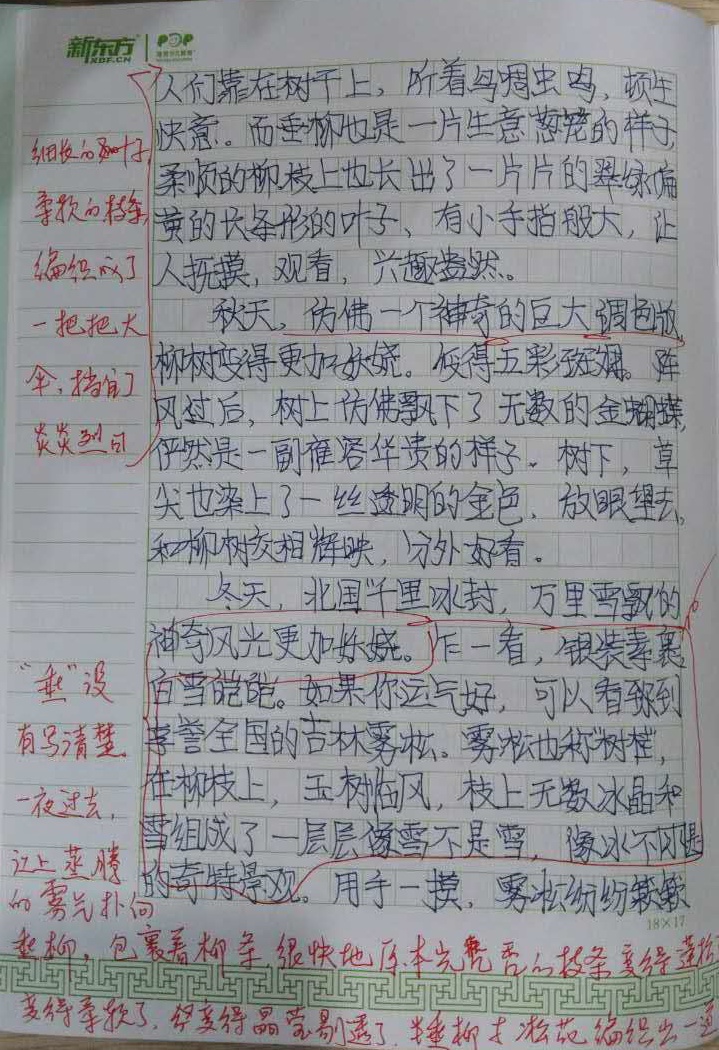 新东方
XDF.CN
POP
人们靠在树干上，听着鸟啁虫鸣，顿生
快意。而垂柳也是一片生意葱茏的样子，
柔顺的柳枝上也长出了一片片的翠绿偏
黄的长条形的叶子、有小手指般大，让
人抚摸，观看，兴趣盎然。
秋天，仿佛一个神奇的巨大调色版，
柳树变得更加妖娆。变得五彩斑斓。阵
风过后，树上仿佛飘下了无数的金蝴蝶，
俨然是一副雍容华贵的样子。树下，草
尖也染上了一丝透明的金色，放眼望去，
和柳树交相辉映，分外好看。
冬天，北国千里冰封，万里雪飘的
神奇风光更加妖娆。乍一看，银装素裹，
白雪皑皑。如果你运气好，可以看到
享誉全国的吉林雾凇。雾凇也称"树挂"，
在柳枝上，玉树临风，枝上无数冰晶和
雪组成了一层层像雪不是雪，像冰不是
的奇特景观。用手一摸，雾凇纷纷簌簌
18×17
细长的柳叶子，
柔软的枝条，
编织成了
一把把大
伞，挡住了
炎炎烈日
"垂"没
有写清楚。
一夜过去，
江上蒸腾
的雾气扑向
垂柳，包裹着柳条，很快地原本光秃秃的枝条变得蓬松
变得柔软了，变得晶莹剔透了。垂柳才凇花编织出一道